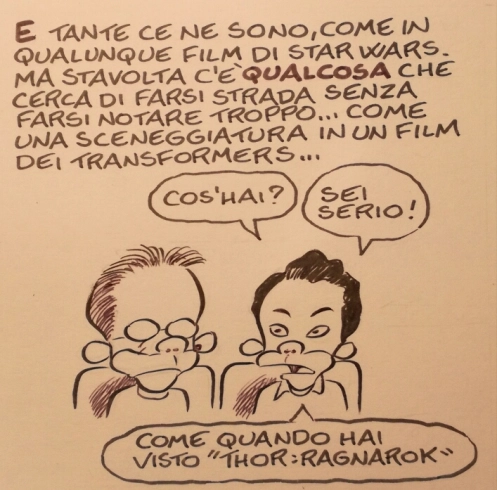 E TANTE CE NE SONO, COME IN
QUALUNQUE FILM DI STAR WARS.
MA STAVOLTA C'È QUALCOSA CHE
CERCA DI FARSI STRADA SENZA
FARSI NOTARE TROPPO... COME
UNA SCENEGGIATURA IN UN FILM
DEI TRANSFORMERS...
COS'HAI?
SEI
SERIO!
COME QUANDO HAI
VISTO "THOR: RAGNAROK"